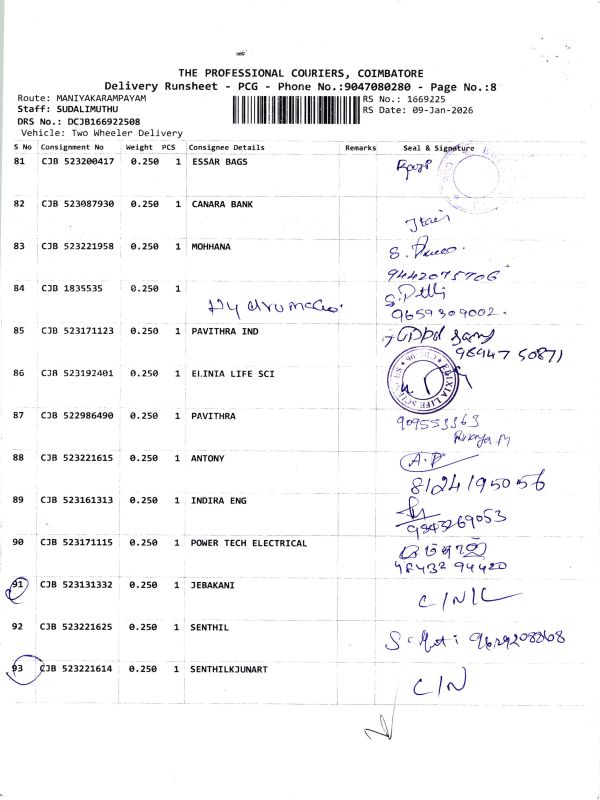 THE PROFESSIONAL COURIERS, COIMBATORE
Delivery Runsheet - PCG - Phone No.:9047080280 - Page No.:8
Route: MANIYAKARAMPAYAM
RS No.: 1669225
Staff: SUDALIMUTHU
RS Date: 09-Jan-2026
DRS No.: DCJB166922508
Vehicle: Two Wheeler Delivery
S No Consignment No Weight PCS Consignee Details Remarks Seal & Signature
81 CJB 523200417 0.250 1 ESSAR BAGS
82 CJB 523087930 0.250 1 CANARA BANK
83 CJB 523221958 0.250 1 MOHHANA
9442075706
84 CJB 1835535 0.250 1
9659309002.
85 CJB 523171123 0.250 1 PAVITHRA IND
98447 50871
86 CJB 523192401 0.250 1 ELINIA LIFE SCI
87 CJB 522986490 0.250 1 PAVITHRA
909553363
88 CJB 523221615 0.250 1 ANTONY A.P
8124195056
89 CJB 523161313 0.250 1 INDIRA ENG
9343269053
90 CJB 523171115 0.250 1 POWER TECH ELECTRICAL
94420
91 CJB 523131332 0.250 1 JEBAKANI
92 CJB 523221625 0.250 1 SENTHIL
93 CJB 523221614 0.250 1 SENTHILKJUNART C/N